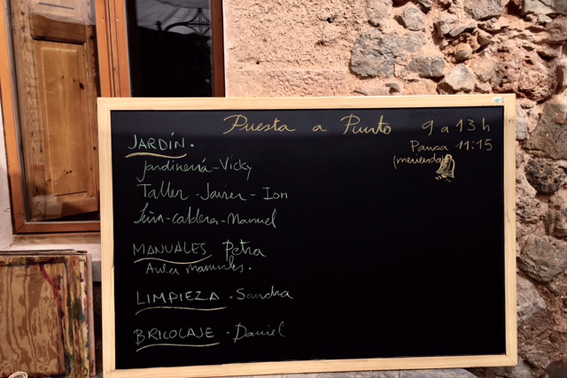 Puesta a Punto
9 a 13 h
Pausa 11:15
(merienda)
JARDÍN.
Jardinería - Vicky
Taller - Javier - Ion
caldera - Manuel
MANUALES Petra
Aula manuales.
LIMPIEZA - Sandra
BRICOLAJE - Daniel